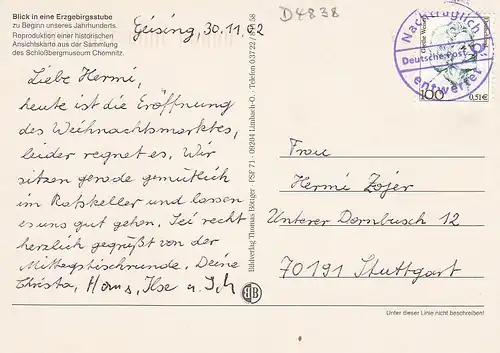 Blick in eine Erzgebirgsstube
zu Beginn unseres Jahrhunderts.
Reproduktion einer historischen
Ansichtskarte aus der Sammlung
des Schloßbergmuseum Chemnitz.
Geising, 30.11.02
D4838
Nachträglich
Deutsche Post
entwertet
100
0,51€
Liebe Hermi,
heute ist die Eröffnung
des Weihnachtsmarktes,
leider regnet es. Wir
sitzen gerade gemütlich
im Ratskeller und lassen
es uns gut gehen. Sei recht
herzlich gegrüßt von der
Mittagstischrunde. Deine
Christa, Hans, Ilse u.
Bildverlag Thomas Böttger · PSF 71 · 09204 Limbach-O. · Telefon 0 37 22
BB
Frau
Hermi Zojer
Unterer Dornbusch 12
70191 Stuttgart
Unter dieser Linie nicht beschreiben!